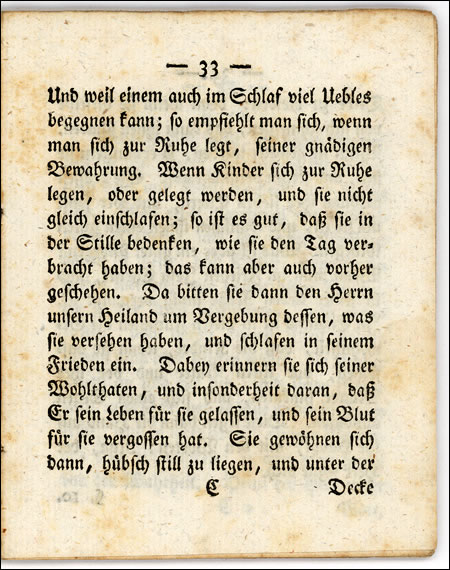 — 33 —
Und weil einem auch im Schlaf viel Uebles
begegnen kann; so empfiehlt man sich, wenn
man sich zur Ruhe legt, seiner gnädigen
Bewahrung. Wenn Kinder sich zur Ruhe
legen, oder gelegt werden, und sie nicht
gleich einschlafen; so ist es gut, daß sie in
der Stille bedenken, wie sie den Tag ver-
bracht haben; das kann aber auch vorher
geschehen. Da bitten sie dann den Herrn
unsern Heiland um Vergebung dessen, was
sie versehen haben, und schlafen in seinem
Frieden ein. Dabey erinnern sie sich seiner
Wohlthaten, und insonderheit daran, daß
Er sein Leben für sie gelassen, und sein Blut
für sie vergossen hat. Sie gewöhnen sich
dann, hübsch still zu liegen, und unter der
C Decke